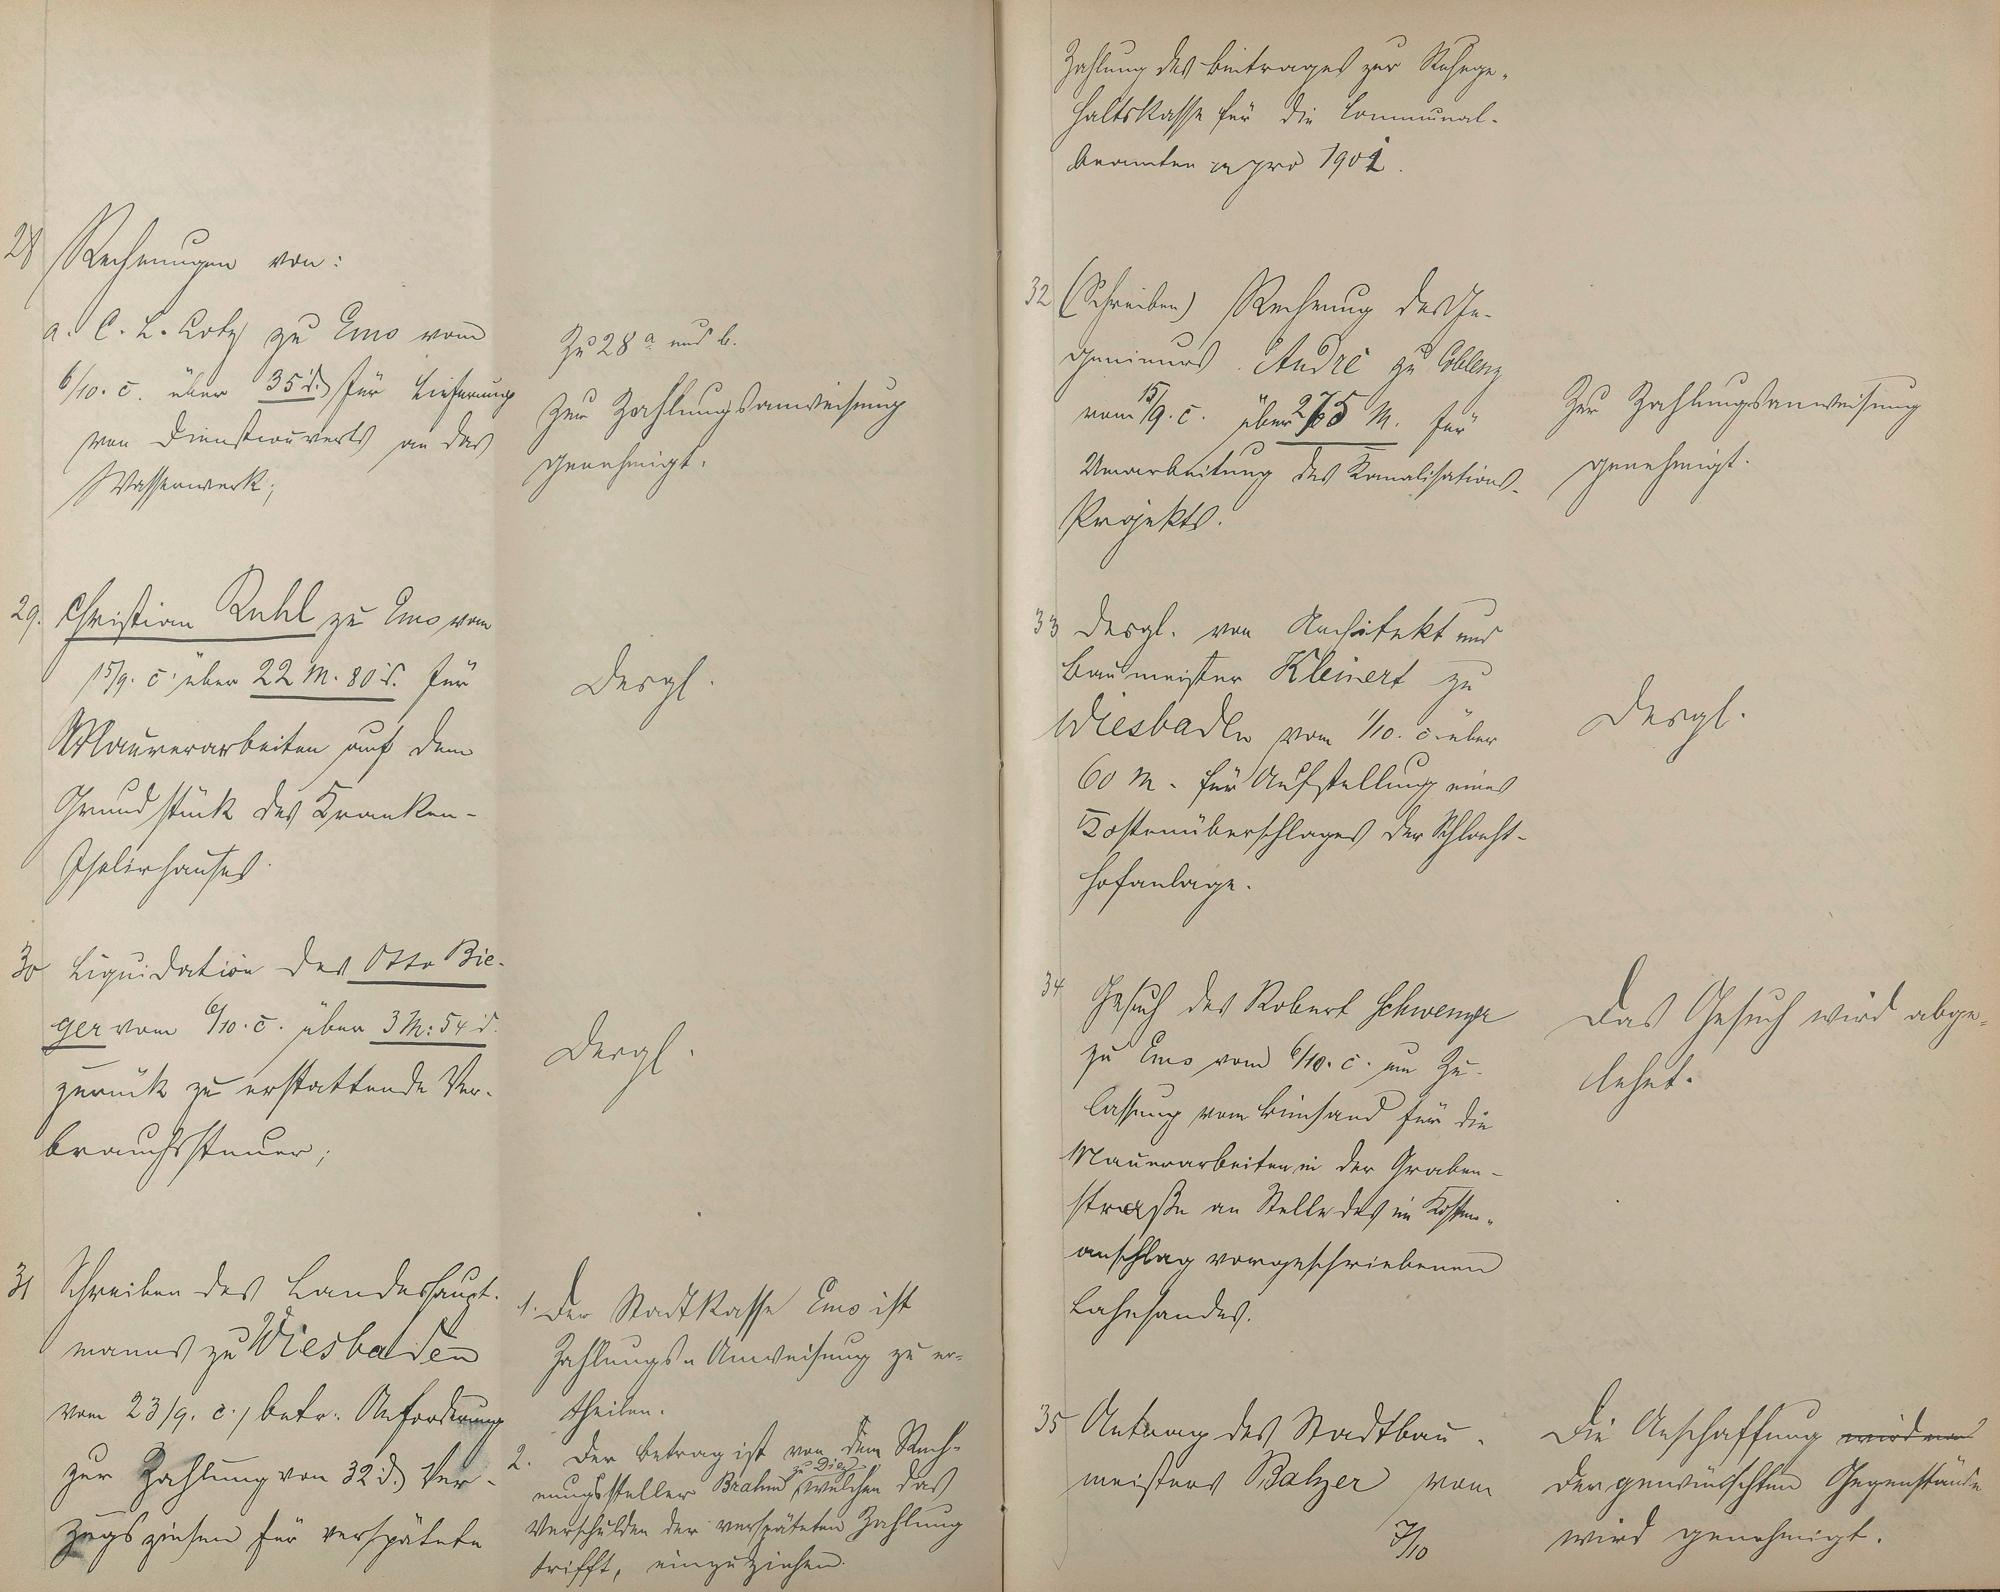 28 Rechnungen von:
a. C. L. Lotz zu Ems vom
6/10. c. über 35 d. für Lieferung
von Dienstcouverts an das
Wasserwerk;
Zu 28 a und b.
Zur Zahlungsanweisung
genehmigt.
29. Christian Ruhl zu Ems vom
15/9. c. über 22 M. 80 d. für
Maurerarbeiten auf dem
Grundstück des Kranken-
Isolirhauses.
Desgl.
30 Liquidation des Otto Bie-
ger vom 6/10. c. über 3 M: 54 d.
zurück zu erstattende Ver-
brauchssteuer;
Desgl.
31 Schreiben des Landeshaupt-
manns zu Wiesbaden
vom 23/9. c., betr. Anforderung
zur Zahlung von 32 d. Ver-
zugszinsen für verspätete
1. Der Stadtkasse Ems ist
Zahlungs-Anweisung zu er-
theilen.
2. Der Betrag ist von dem Rech-
nungssteller Brahm zu Diez, welchen das
Verschulden der verspäteten Zahlung
trifft, einzuziehen.
Zahlung des Beitrages zur Ruhege-
haltskasse für die Communal-
beamten pro 1901.
32 (Schreiben) Rechnung des In-
genieurs André zu Coblenz
vom 15/9. c. über 275 M. für
Umarbeitung des Kanalisations-
Projekts.
Zur Zahlungsanweisung
genehmigt.
33 Desgl. von Architekt und
Baumeister Kleinert zu
Wiesbaden vom 1/10. c. über
60 M. für Aufstellung eines
Kostenüberschlages der Schlacht-
hofanlage.
Desgl.
34 Gesuch des Robert Schwenger
zu Ems vom 6/10. c. um Zu-
lassung vom Bimsand für die
Mauerarbeiten in der Graben-
straße an Stelle des im Kosten-
anschlag vorgeschriebenen
Lahnsandes.
Das Gesuch wird abge-
lehnt.
35 Antrag des Stadtbau-
meisters Balzer vom
7/10
Die Anschaffung
der gewünschten Gegenstände
wird genehmigt.